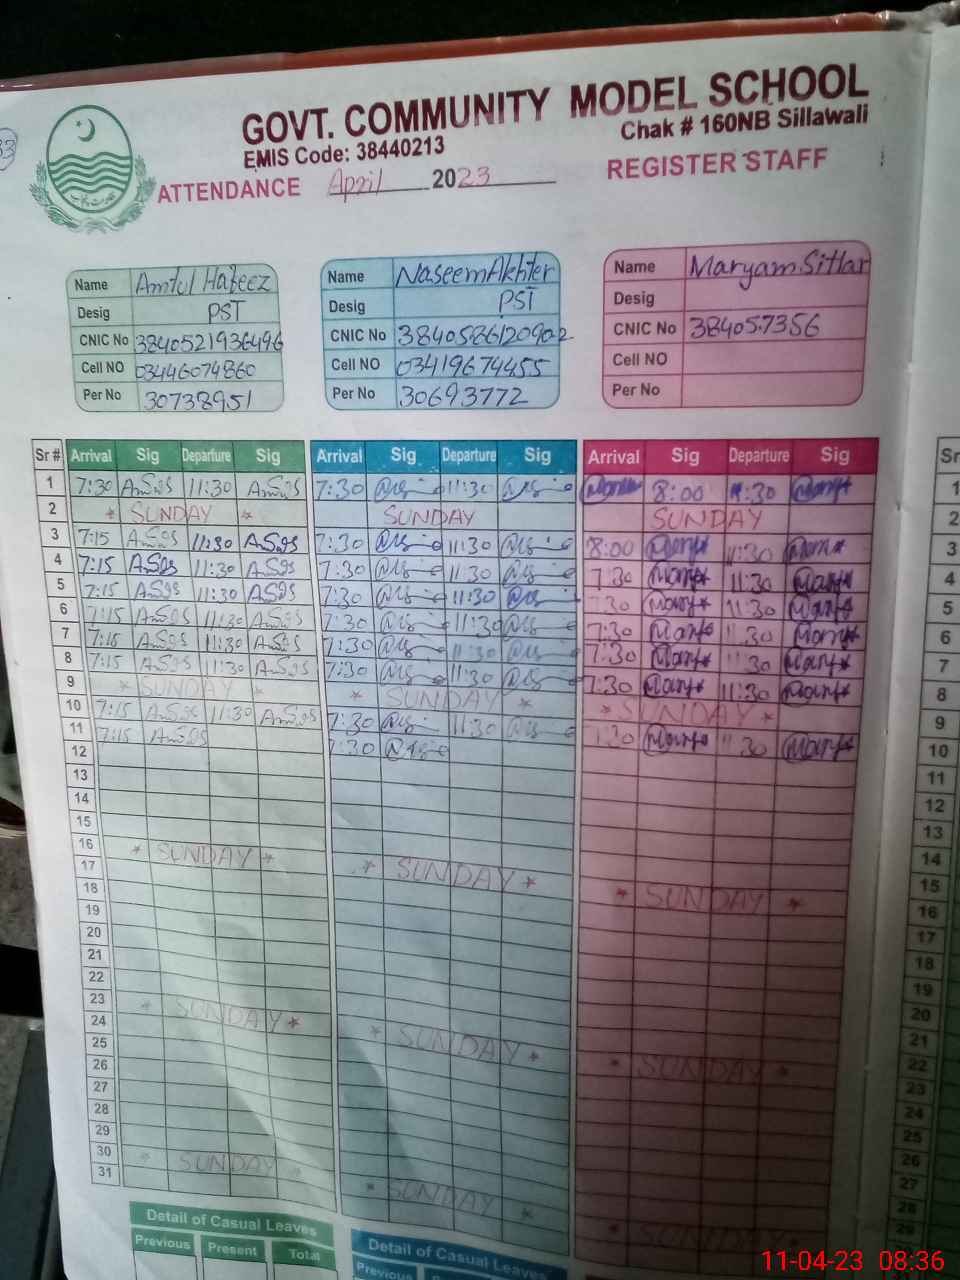 GOVT. COMMUNITY MODEL SCHOOL
EMIS Code: 38440213
Chak # 160NB Sillawali
ATTENDANCE April 2023 REGISTER STAFF
Name Amtul Hafeez
Desig PST
CNIC No 3840521936496
Cell NO 03446074860
Per No 30738951
Name Naseem Akhter
Desig PST
CNIC No 3840586120902
Cell NO 03419674455
Per No 30693772
Name Maryam Sittar
Desig
CNIC No 384057356
Cell NO
Per No
Sr # Arrival Sig Departure Sig Arrival Sig Departure Sig Arrival Sig Departure Sig Sr
1 7:30 11:30 7:30 11:30 8:00 11:30 1
2 * SUNDAY * SUNDAY SUNDAY 2
3 7:15 11:30 7:30 11:30 8:00 11:30 3
4 7:15 11:30 7:30 11:30 7:30 11:30 4
5 7:15 11:30 7:30 11:30 7:30 11:30 5
6 7:15 11:30 7:30 11:30 7:30 11:30 6
7 7:15 11:30 7:30 11:30 7:30 11:30 7
8 7:15 11:30 7:30 11:30 7:30 11:30 8
9 * SUNDAY * * SUNDAY * * SUNDAY * 9
10 7:15 11:30 7:30 11:30 7:30 11:30 10
11 7:15 7:30 11
12 12
13 13
14 14
15 15
16 * SUNDAY * * SUNDAY * * SUNDAY * 16
17 17
18 18
19 19
20 20
21 21
22 22
23 * SUNDAY * * SUNDAY * * SUNDAY * 23
24 24
25 25
26 26
27 27
28 28
29 29
30 * SUNDAY * * SUNDAY * * SUNDAY *
31
Detail of Casual Leaves
Previous Present Total
Detail of Casual Leaves
Previous
11-04-23 08:36